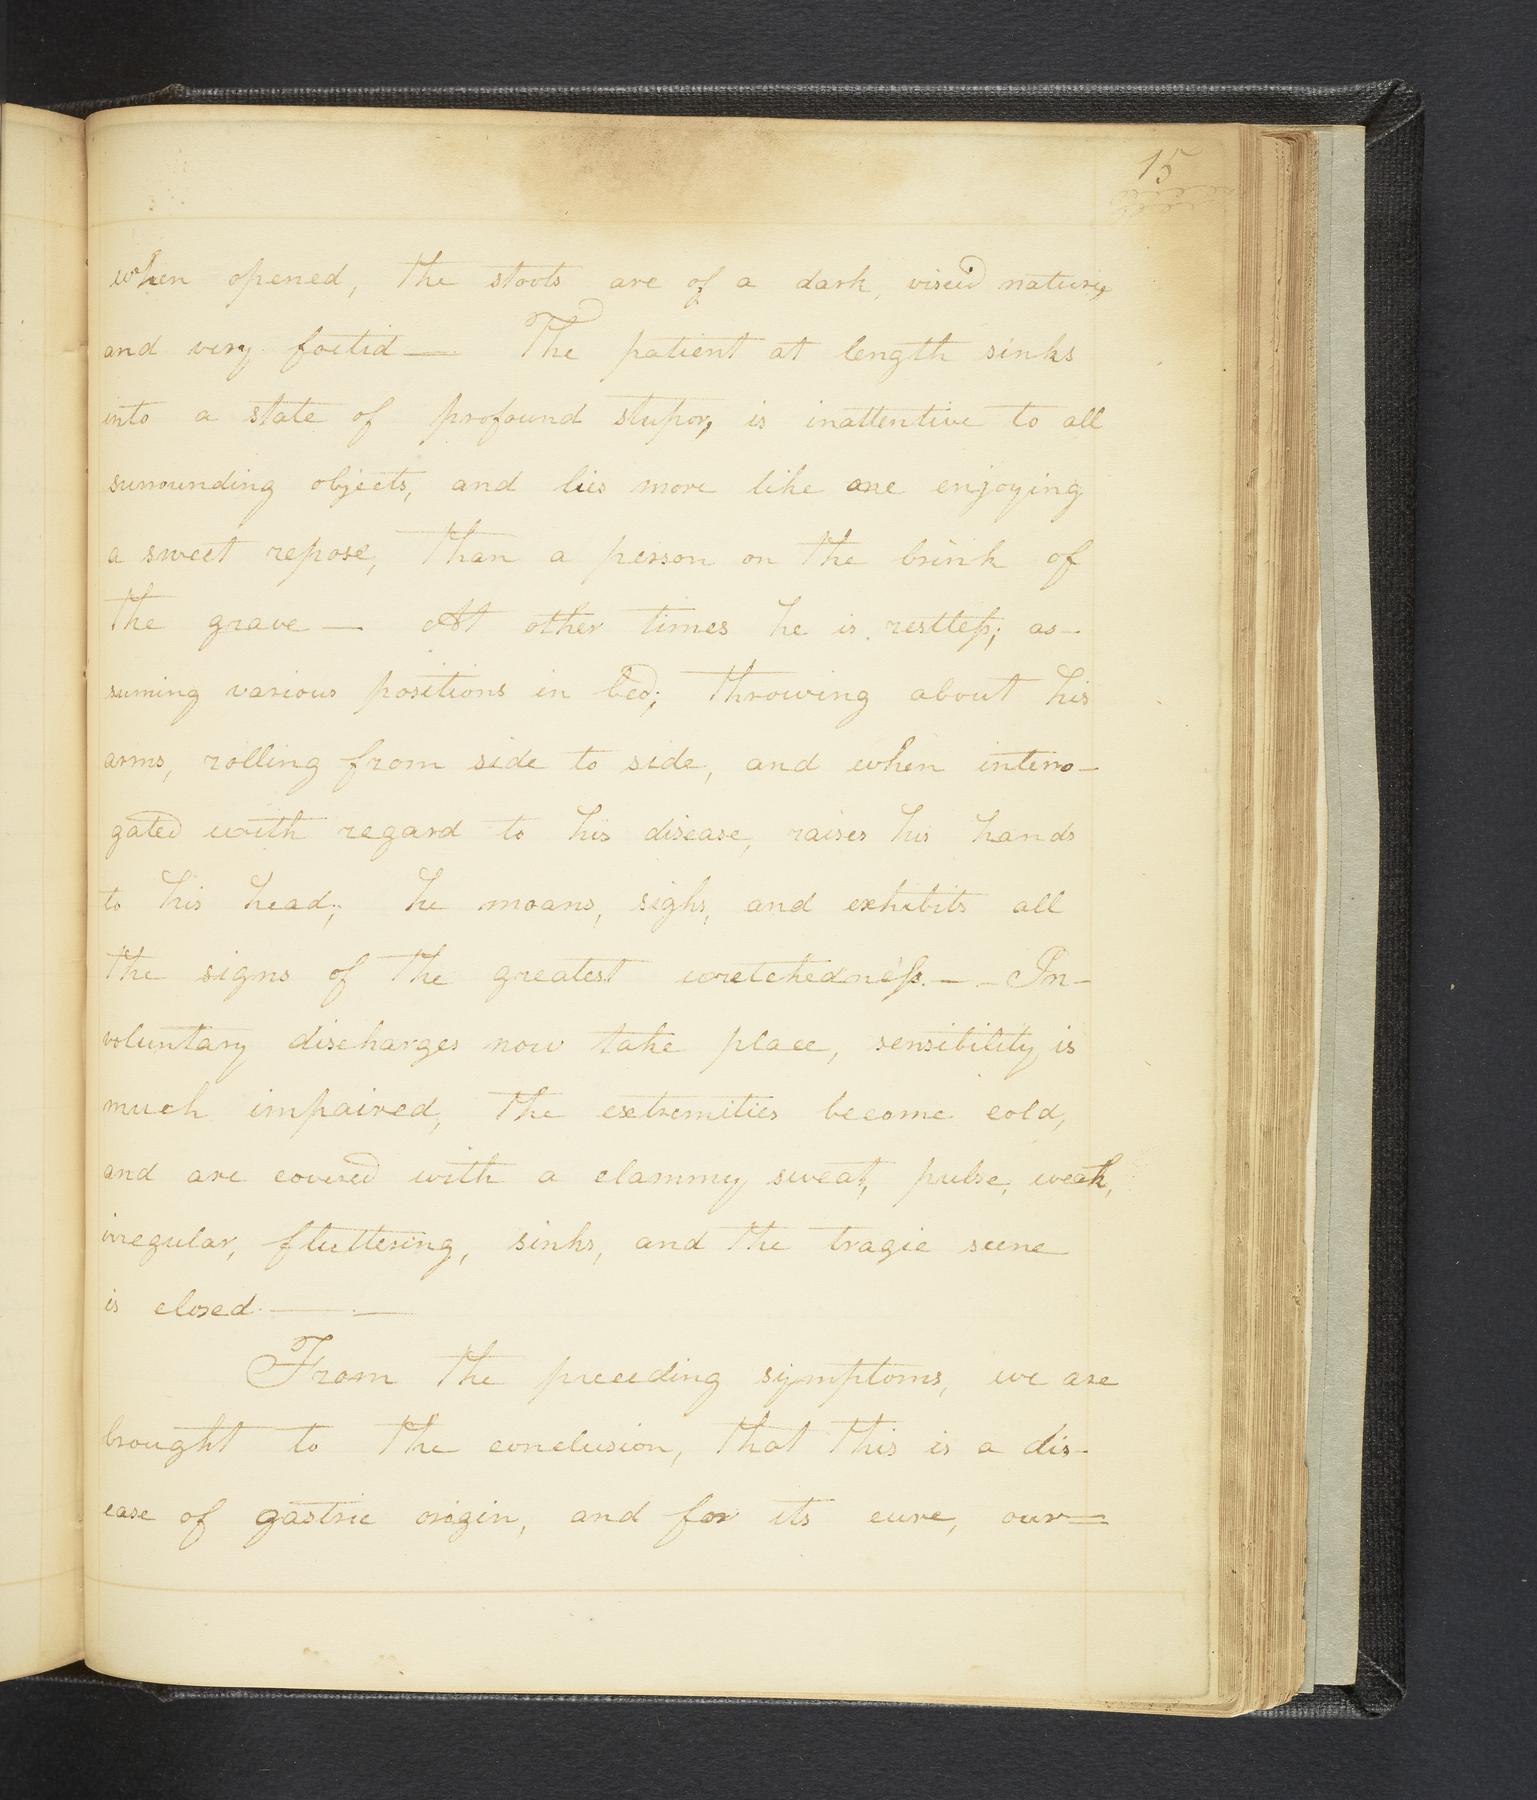 15
when opened, the stools are of a dark, viscid nature,
and very foetid — The patient at length sinks
into a state of profound stupor, is inattentive to all
surrounding objects, and lies more like one enjoying
a sweet repose, than a person on the brink of
the grave — At other times he is restless; as-
suming various positions in bed; throwing about his
arms, rolling from side to side, and when interro-
gated with regard to his disease, raises his hands
to his head; he moans, sighs, and exhibits all
the signs of the greatest wretchedness. — In-
voluntary discharges now take place, sensibility is
much impaired, the extremities become cold,
and are covered with a clammy sweat, pulse, weak,
irregular, fluttering, sinks, and the tragic scene
is closed — —
From the preceding symptoms, we are
brought to the conclusion, that this is a dis-
ease of gastric origin, and for its cure, our=